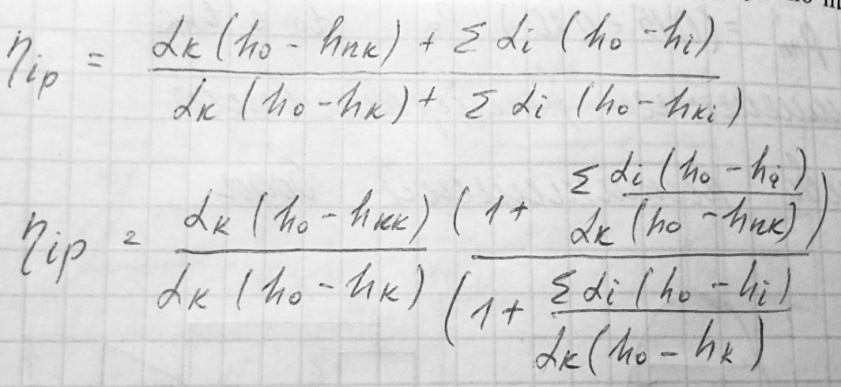 η_ip = (α_к (h_0 - h_пк) + Σ α_i (h_0 - h_i)) / (α_к (h_0 - h_к) + Σ α_i (h_0 - h_кi))
η_ip = (α_к (h_0 - h_кк) / α_к (h_0 - h_к)) · (1 + Σ α_i (h_0 - h_i) / α_к (h_0 - h_пк)) / (1 + Σ α_i (h_0 - h_i) / α_к (h_0 - h_к))